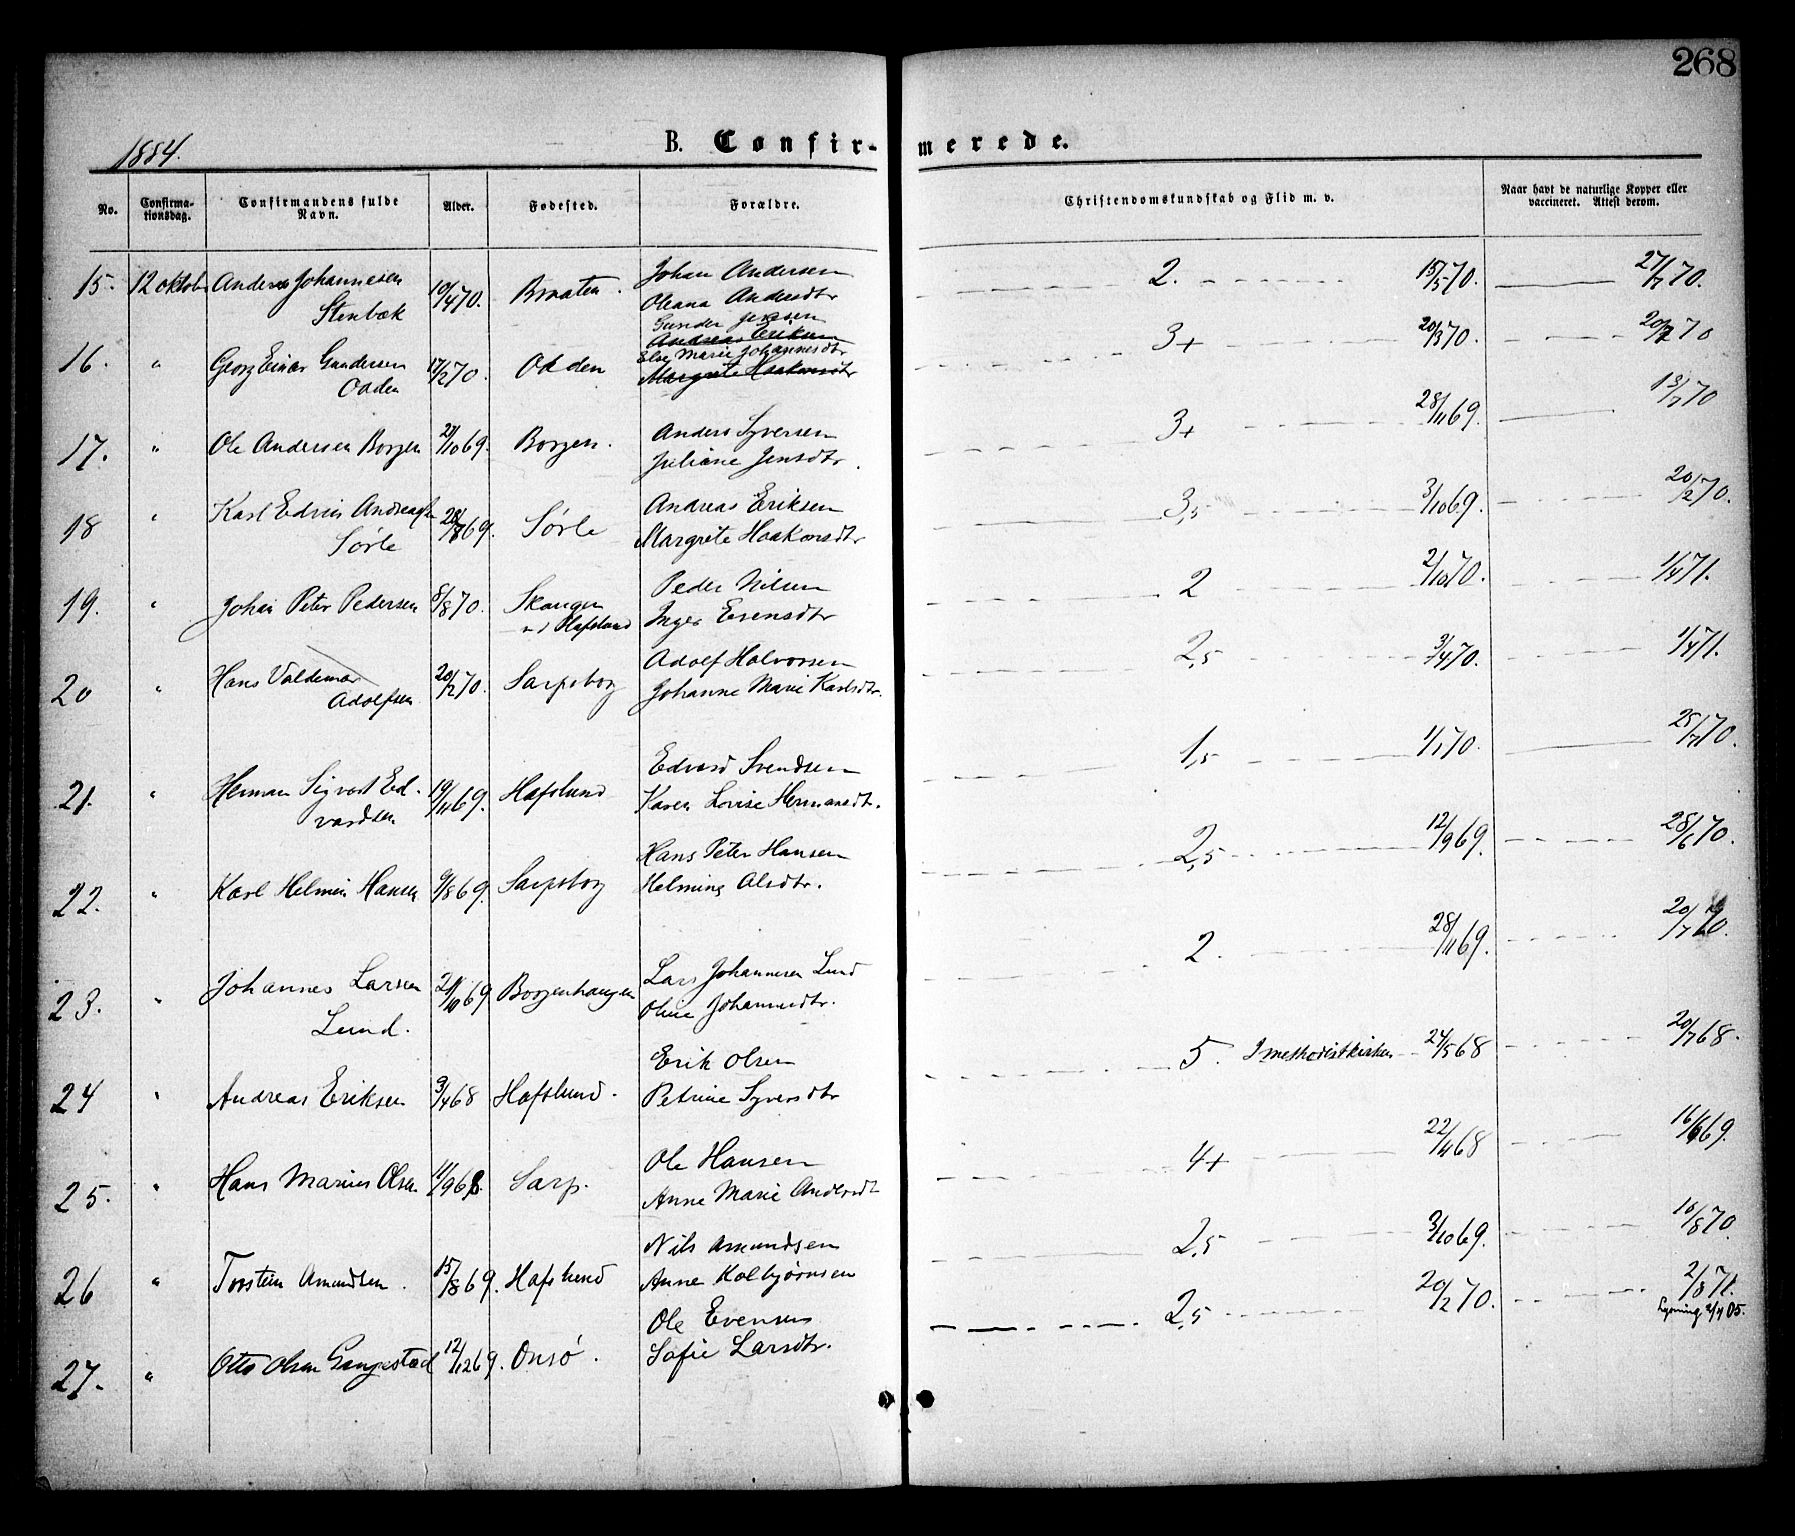 268
1884.
B. Confir- merede.
No.
Confirma-
tionsdag.
Confirmandens fulde
Navn.
Alder.
Fødested.
Forældre.
Christendomskundskab og Flid m. v.
Naar havt de naturlige Kopper eller
vaccineret. Attest derom.
15. 12 oktob Anders Johannesen 10/4 70. Braaten. Johan Andersen 2. 15/5 70. 27/7 70.
Stenbæk Oleana Andersdtr
Gunder Jensen
Andreas Eriksen
16. " Georg Einar Gundersen 17/2 70. Okden Else Marie Johannesdtr 3+ 20/3 70. 20/7 70
Okden Margrete Haakonsdtr
17. " Ole Andersen Borgen 21/10 69. Borgen. Anders Syversen 3+ 28/11 69. 13/7 70
Juliane Jensdtr.
18 " Karl Edvin Andreasen 28/8 69. Sørle Andreas Eriksen 3,5 3/10 69. 20/7 70.
Sørle Margrete Haakonsdtr
19. " Johan Peter Pedersen 8/8 70. Skougen Peder Nilsen 2 2/10 70. 1/4 71.
u/ Hafslund Inger Evensdtr
20 " Hans Valdemar 20/2 70. Sarpsborg Adolf Halvorsen 2,5 3/4 70. 1/4 71.
Adolfsen Johanne Marie Karlsdtr.
21. " Herman Sigvart Ed- 19/11 69. Hafslund Edvard Svendsen 1,5 1/1 70. 25/7 70.
vardsen Karen Lovise Hermansdtr.
22. " Karl Helmin Hansen 9/8 69. Sarpsborg Hans Peter Hansen 2,5 12/9 69. 28/6 70.
Helmine Olsdtr.
23. " Johannes Larsen 21/10 69. Borgenhaugen Lars Johannesen Lund 2. 28/11 69. 20/7 70.
Lund. Oline Johannesdtr.
24 " Andreas Eriksen 3/4 68 Hafslund. Erik Olsen 5. I methodistkirken 24/5 68 20/7 68.
Petrine Syversdtr
25. " Hans Marius Olsen 11/9 68. Sarp. Ole Hansen 4+ 22/11 68 16/6 69.
Anne Marie Andersdtr
26 " Torstein Amundsen. 15/8 69. Hafslund Nils Amundsen 2,5 3/10 69. 10/8 70.
Anne Kolbjørnsen
27. " Otto Olsen Gangestad 12/12 69. Onsø. Ole Evensen 2,5 20/2 70. 2/8 71.
Sofie Larsdtr. Lysning 2/4 05.